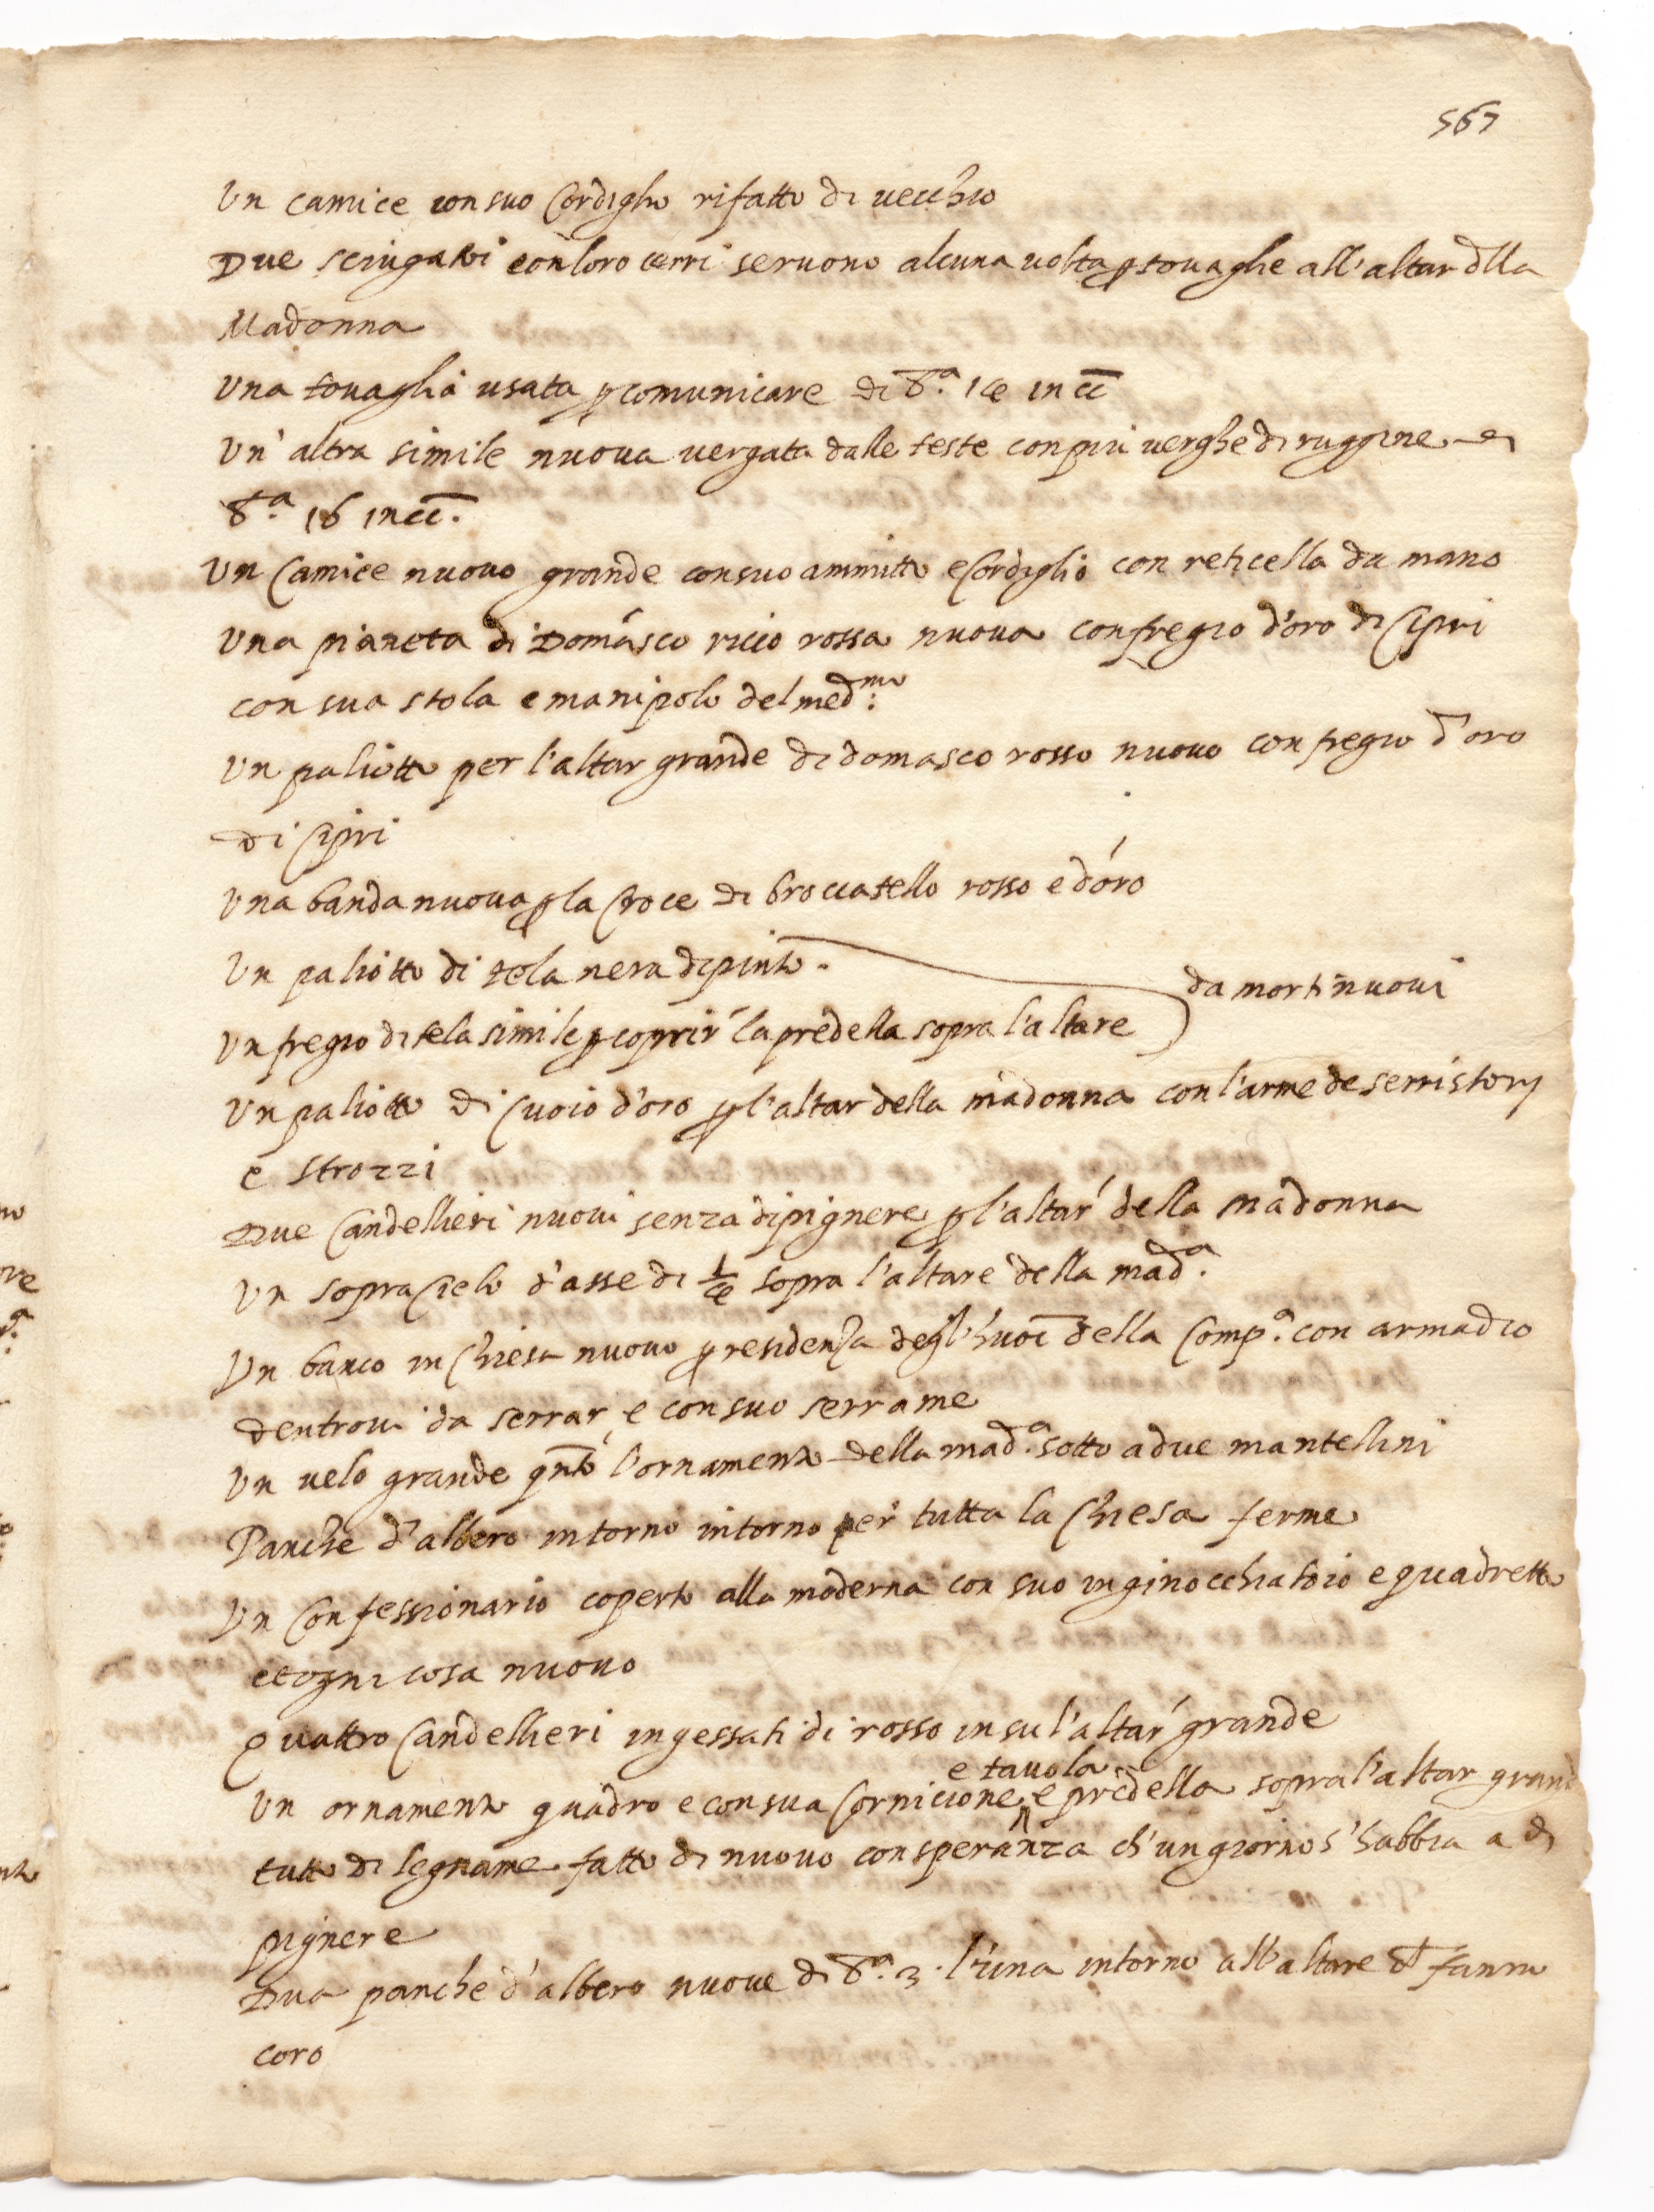 567
Un camice con suo Cordiglio rifatto di vecchio
Due sciugatoi con loro cerri seruono alcuna uolta p touaglie all'altar dlla
Madonna
Una touaglia usata p comunicare di
Un' altra simile nuoua uergata dalle teste con piu uerghe di ruggine
16 in
Un Camice nuouo grande con suo ammitto e Cordiglio con reticella da mano
Una pianeta di Domasco riccio rossa nuoua con fregio d'oro di Cipri
con sua stola e manipolo del med.mo
Un paliotto per l'altar grande di domasco rosso nuouo con fregio d'oro
di Cipri
Una banda nuoua p la Croce di broccatello rosso e d'oro
Un paliotto di tela nera dipinto.
da morti nuoui
Un fregio di tela simile p coprir' la predella sopra l'altare
Un paliotto di Cuoio d'oro p l'altar della madonna con l'arme de serristorj
e strozzi
Due Candellieri nuoui senza dipignere p l'altar' della madonna
Un sopracielo d'asse di sopra l'altare della mad.a
Un banco in Chiesa nuouo p residenza degl'huoi della Comp.a con armadio
dentroui da serrar, e con suo serrame
Un uelo grande qnto l'ornamento della mad.a sotto a due mantellini
Panche d'albero intorno intorno per tutta la Chiesa ferme
Un Confessionario coperto alla moderna con suo inginocchiatoio e quadretto
et ogni cosa nuouo
Quattro Candellieri ingessati di rosso in su l'altar' grande
e tauola
Un ornamento quadro e con sua Cornicione, e predella sopra l'altar grand
tutto di legname fatto di nuouo con speranza ch'un giorno s'habbia a di
pignere
Dua panche d'albero nuoue di 3. l'una intorno all'altare fanno
coro